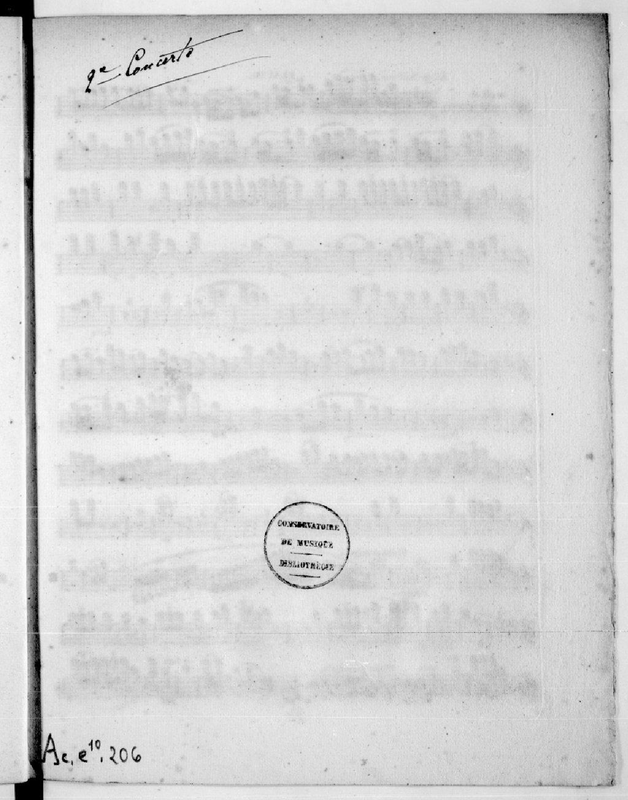 2e Concerto
CONSERVATOIRE
DE MUSIQUE
BIBLIOTHÈQUE
Ac. e10. 206